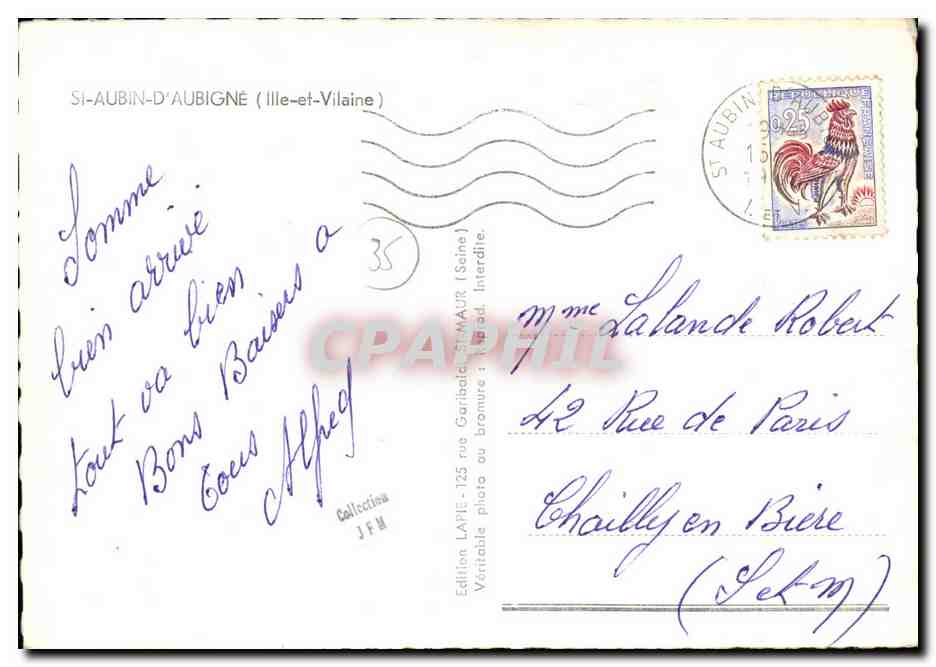 St-AUBIN-D'AUBIGNÉ (Ille-et-Vilaine)
Somme
bien arrivé
tout va bien
Bons Baisers a
tous Alfred
35
Collection
JFM
Edition LAPIE - 125 rue Garibaldi, St-MAUR (Seine)
Véritable photo au bromure : Reprod. Interdite.
CPAPHIL
ST AUBIN D'AUB
0,25
Mme Lalande Robert
42 Rue de Paris
Chailly en Bière
(S et M)